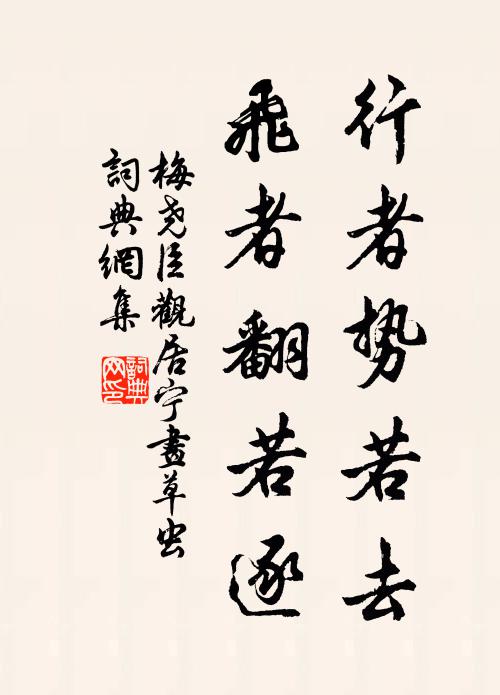 行者势若去
飛者翻若逐
梅尧臣觀居宁畫草虫
詞典網集
詞典網印